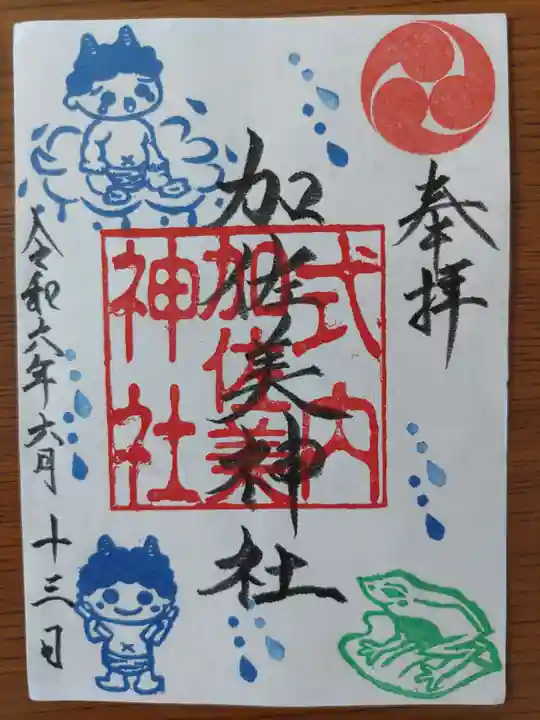 奉拝
加佐美神社
式内
加佐美
神社
令和六年六月十三日